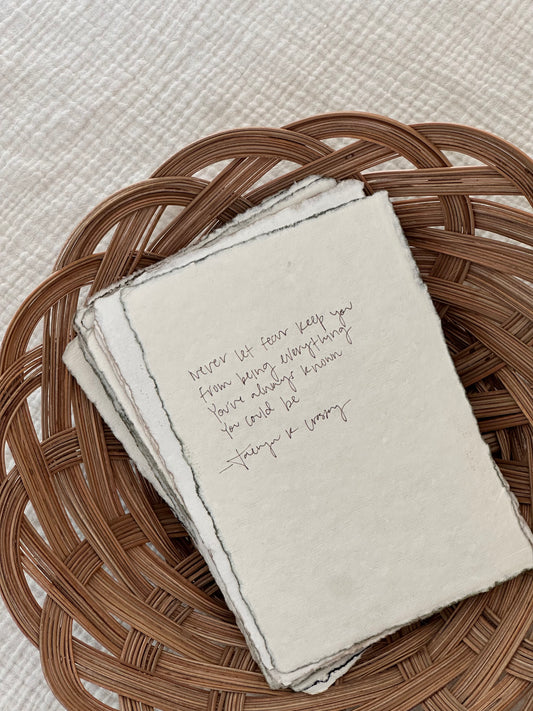 Never let fear keep you
from being everything
You've always known
You could be
K